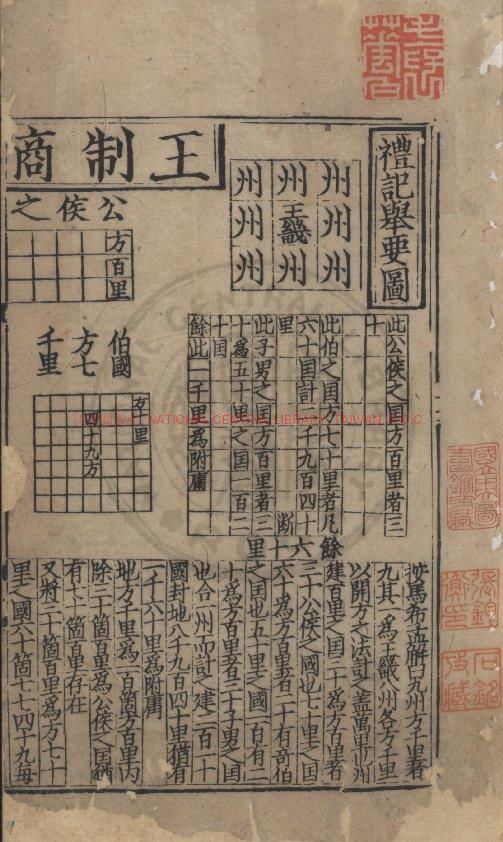 禮記舉要圖
州州州
州王畿州
州州州
王制商
公侯之
方百里
此公侯之国方百里者三
十
此伯之国方七十里者凡
六十国計二千九百四十
里
此子男之国方百里者三
十爲五十里之国一百二
十国
餘此一千里爲附庸
断
餘六十里
伯國
方七
千里
方十里
四十九方
馬希孟解曰九州方千里者
九其一爲王畿八州各方千里
以開方之法計之蓋萬里也州
建百里之国三十爲方百里者
三十公侯之國也七十里之国
六十爲方百里者二十有奇伯
之国也五十里之國一百有二
十爲方百里者三十子男之国
也合一州而計之建二百一十
國封地八千九百四十里猶有
一千六十里爲附庸
地方千里爲一百箇方百里内
除三十箇百里爲公侯之国猶
有七十箇百里存在
又將三十箇百里爲方七十
里之國六十箇七七四十九每
NATIONAL CENTRAL LIBRARY, TAIWAN R.O.C.